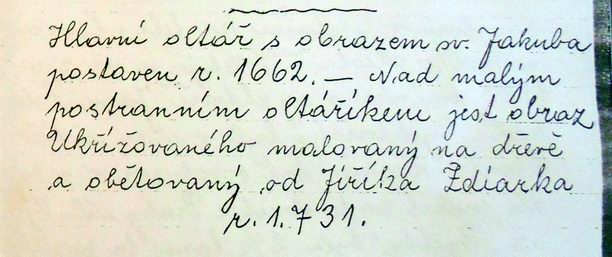 Hlavní oltář s obrazem sv. Jakuba
postaven r. 1662. — Nad malým
postranním oltáříkem jest obraz
Ukřižovaného malovaný na dřevě
a obětovaný od Jiříka Zdiarka
r. 1.731.